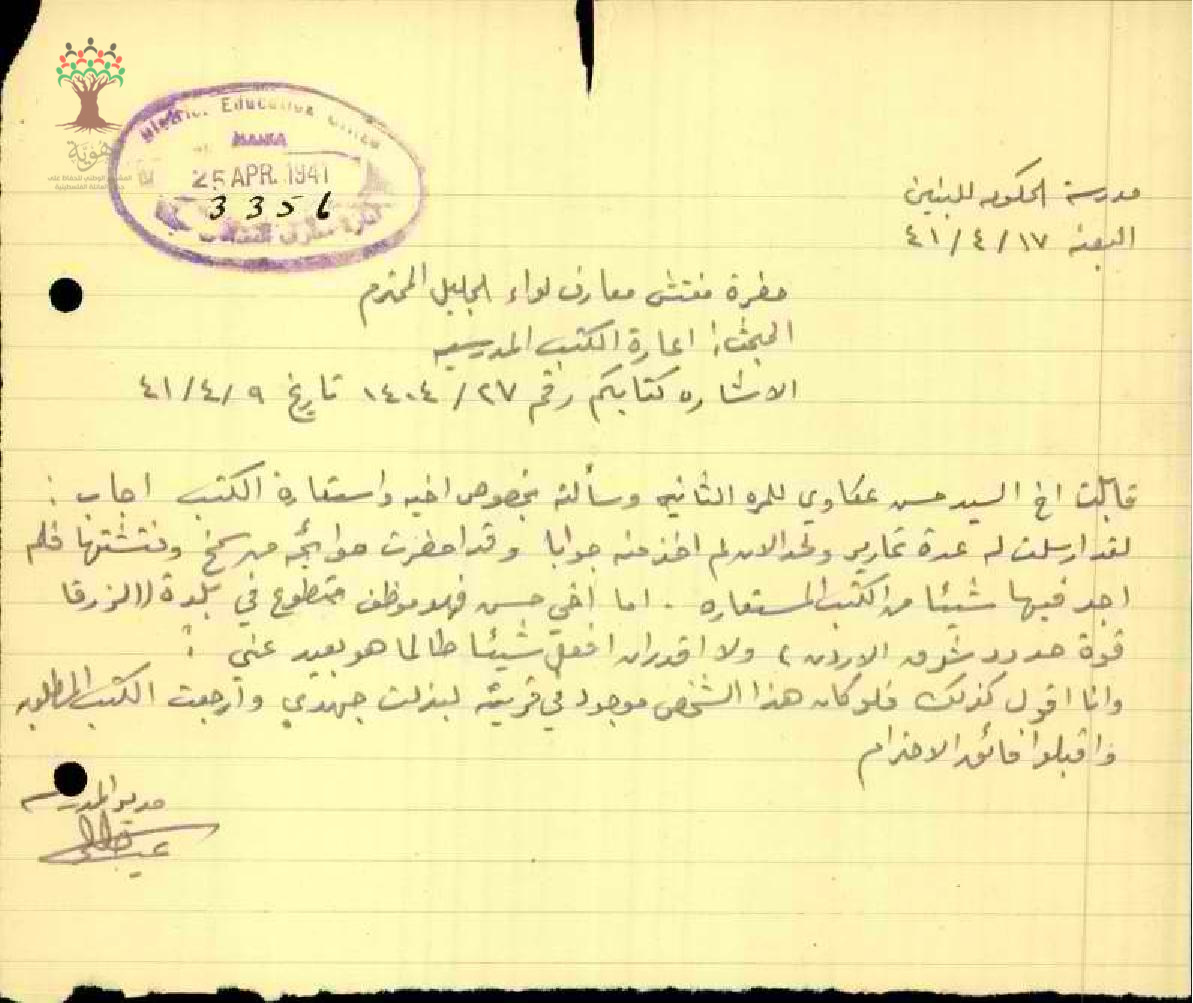 هوية
المشروع الوطني للحفاظ على
جذور العائلة الفلسطينية
District Education Office
HAIFA
25 APR. 1941
3356
مدرسة الحكومه للبنين
البعنه ١٧/٤/٤١
حضرة مفتش معارف لواء الجليل المحترم
المبحث: اعارة الكتب المدرسيه
الاشاره كتابكم رقم ٢٧/١٤٠٤ تاريخ ٩/٤/٤١
قابلت اخ السيد حسن عكاوي للمره الثانيه وسألته بخصوص اخيه واستعارة الكتب اجاب :
لقد ارسلت له عدة تحارير ولحد الان لم اخذ منه جوابا وقد احضرت حوائجه من سمخ وفتشتها فلم
اجد فيها شيئا من الكتب المستعاره . اما اخي حسن فهو موظف متطوع في بلدة ((الزرقا
قوة حدود شرق الاردن) ولا اقدر ان افعل شيئا طالما هو بعيد عني :
وانا اقول كذلك فلو كان هذا الشخص موجود في قريته لبذلت جهدي وارجعت الكتب المطلوبه
واقبلوا فائق الاحترام
مدير المدرسه